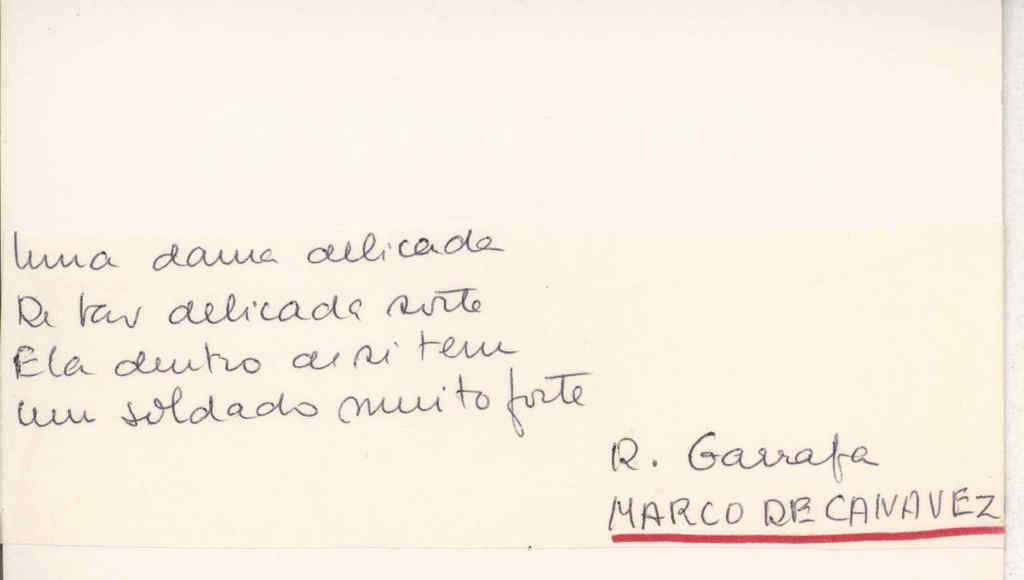 Uma dama delicada
De tão delicada sorte
Ela dentro de si tem
um soldado muito forte
R. Garrafa
MARCO DE CANAVEZ